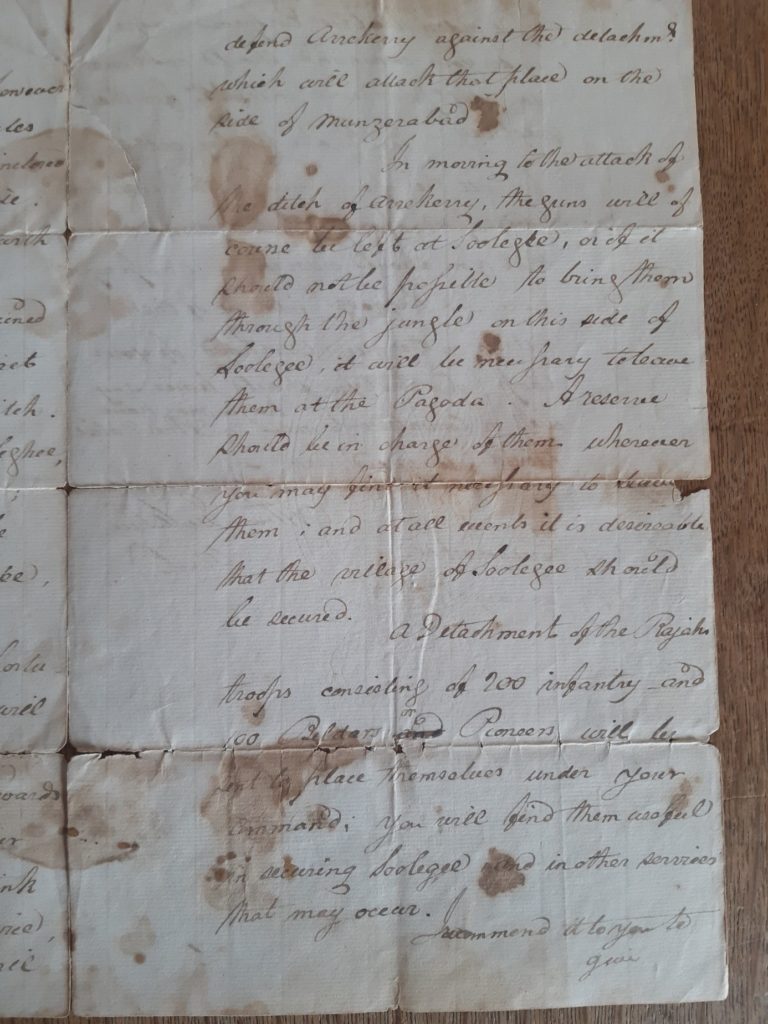 defend Arrekerry against the detachmt.
which will attack that place on the
side of Munzerabad
In moving to the attack of
the ditch of Arrekerry, the guns will of
course be left at Soolegee, or if it
should not be possible to bring them
through the jungle on this side of
Soolegee, it will be necessary to leave
them at the Pagoda. A reserve
should be in charge of them wherever
you may find it necessary to leave
them; and at all events it is desireable
that the village of Soolegee should
be secured.
A Detachment of the Rajahs
troops consisting of 200 infantry and
or
100 Beldars and Pioneers will be
sent to place themselves under your
command; you will find them useful
in securing Soolegee and in other services
that may occur.
I recommend it to you to
give
however
ditch.